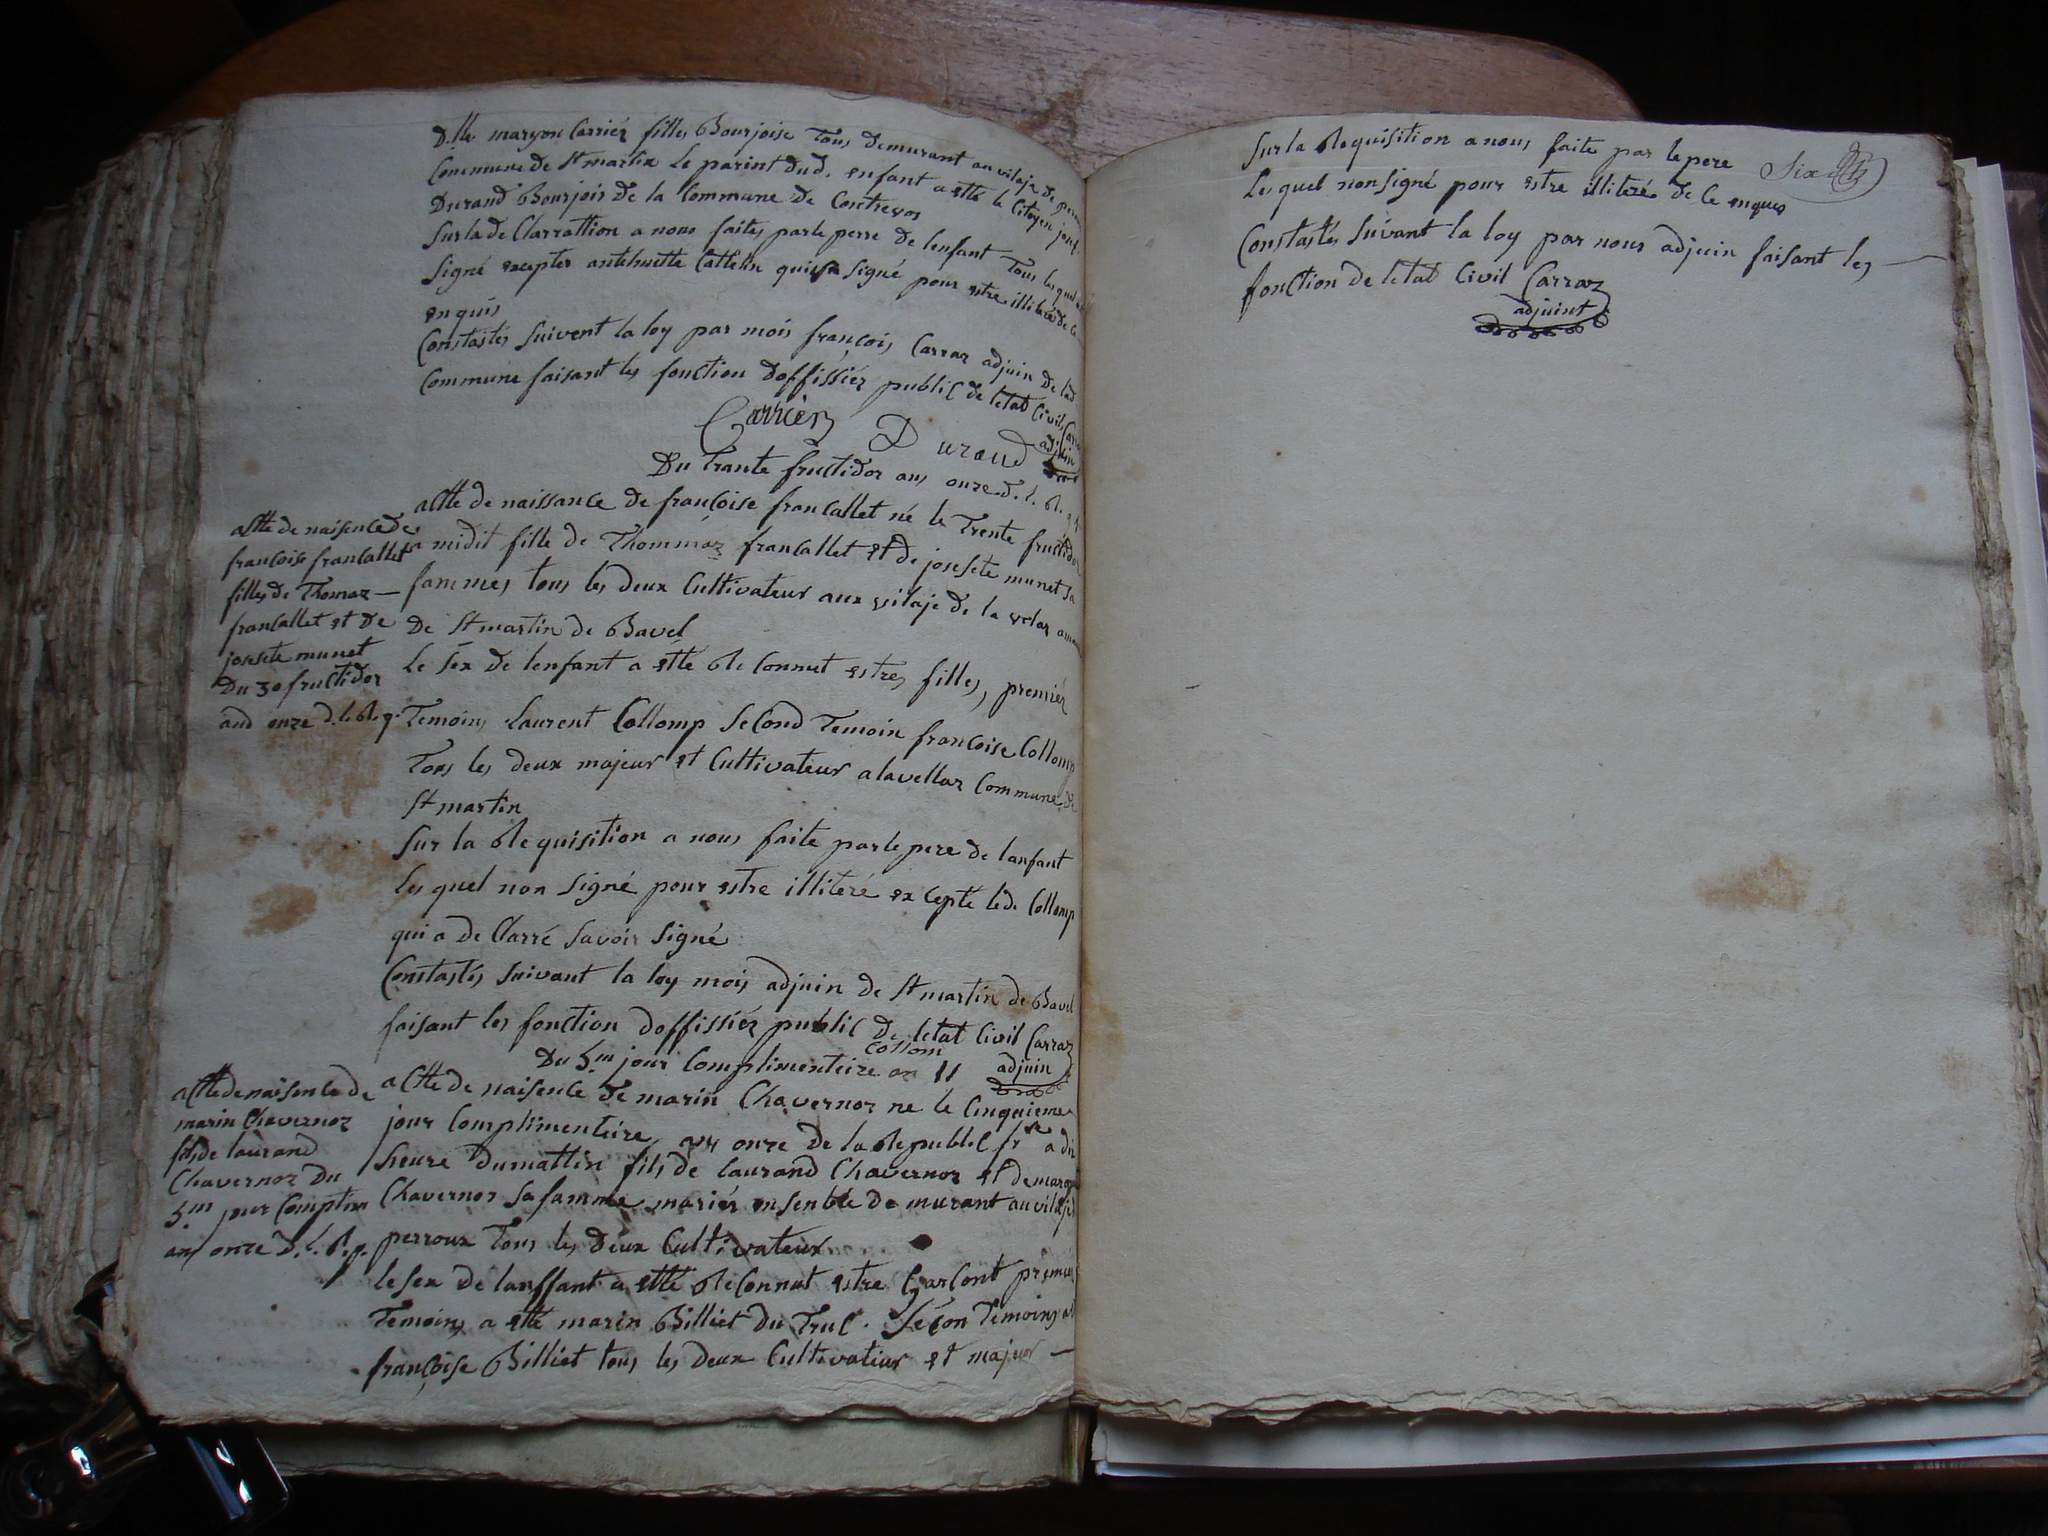 D.lle maryon Carriér filles Bourjoise Tous demurant au vilaje de
Commune de St martin le parint dud. enfant a etté le Citoyen
Durand Bourjois de la Commune de Contrevos
Sur la de Clarrattion a nous faites par le perre de lenfant Tous lesquel
Signé excepter antehnette Cattelin qui signé pour estre illiteré de Ce
enquis
Constastés Suivent la loy par mois françois Carraz adjuin De lad
Commune faisant les fonction Doffissiér public de letat Civil
Carrier Durand
adjuin
Du Trante fructidor ans onze D. l. R.
actte de naissance de françoise francallet né le Trente fructidor
a midit fille de Thommaz francallet et de josete munet sa
fammes tous les deux Cultivateur aux vilaje de la velaz
De St martin de Bavel
Le séx de lenfant a etté Re Connut estres filles, premiér
Temoins Laurent Collomp SeCond Temoin francoise Collomp
Tous les deux majeur et Cultivateur a lavellaz Commune de
St martin
Sur la Requisition a nous faite par le pere de lanfant
Les quel non signé pour estre illiteré excepte led. Collomp
qui a de Clarré savoir signé
Constastés suivant la loy mois adjuin de St martin de Bavel
faisant les fonction doffissiér public De letat Civil Carraz
adjuin
actte de naisence de
francoise francallet
filles de Thomaz —
francallet et De
josete munet
Du 30 fructidor
and onze d. l. R. q.
Du 5.m jour Complimenteire an 11
actte de naisence de marin Chavernoz ne le Cinquieme
jour Complimenteire, an onze de la Republic fr.se a dix
heure Dumattin fils de laurand Chavernoz et de
Chavernoz sa famme mariés ensenble de murant au vilaje
perroux Tous les Deux Cultivateur
le sex de lanffant a etté ReConnut estre Garcont premiér
Temoins a etté marin Billiet Du Truc. Sécon Temoins
françoise Billiet tous les deux Cultivateur et majeur —
actte de naisence de
marin Chavernoz
fils de laurand
Chavernoz Du
5.m jour Complim
ans onze D. l. R. q.
Sur la Requisition a nous faite par le pere
Six
Les quel non signé pour estre illiteré de Ce enques
Constastés Suivant la loy par nous adjuin faisant les —
fonction de letat Civil Carraz
adjuint